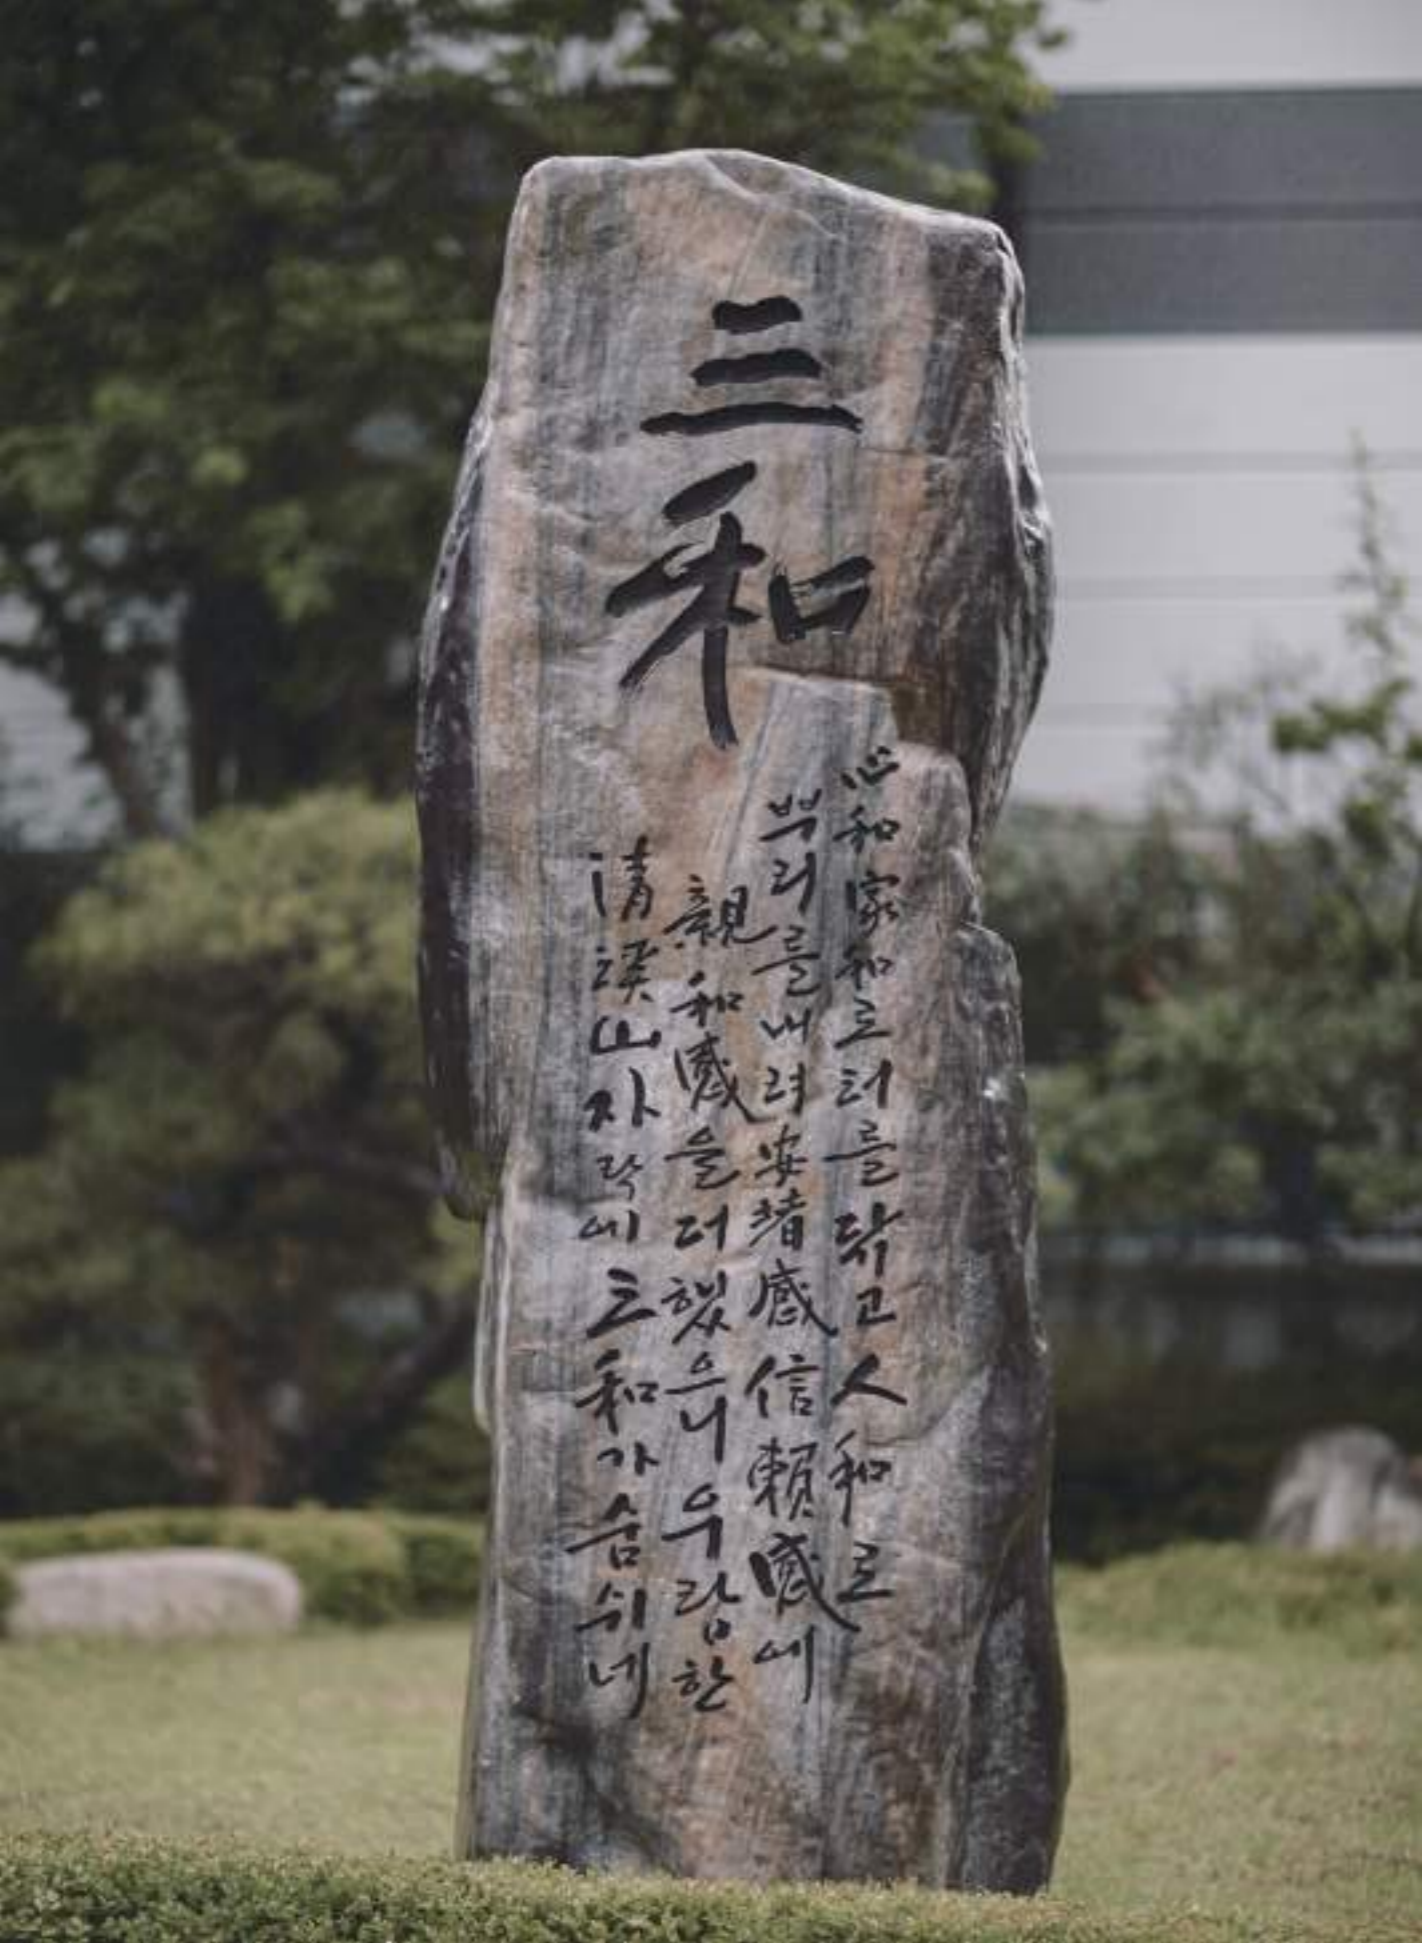 三和
心和家和로터를닦고人和로
뿌리를내려安堵感信賴感에
親和感을더했으니우람한
淸溪山자락에三和가숨쉬네